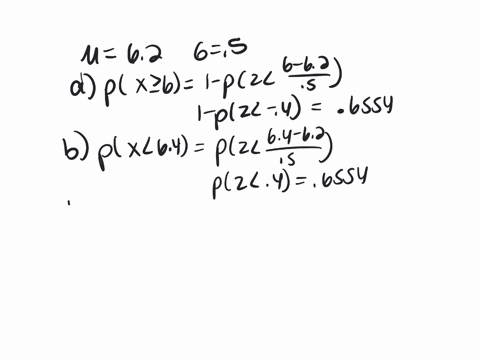 μ = 6.2 6 = .5
a) p( x ≥ 6) = 1 - p(z < (6-6.2)/.5)
1 - p(z < -.4) = .6554
b) p( x < 6.4) = p(z < (6.4-6.2)/.5)
p(z < .4) = .6554